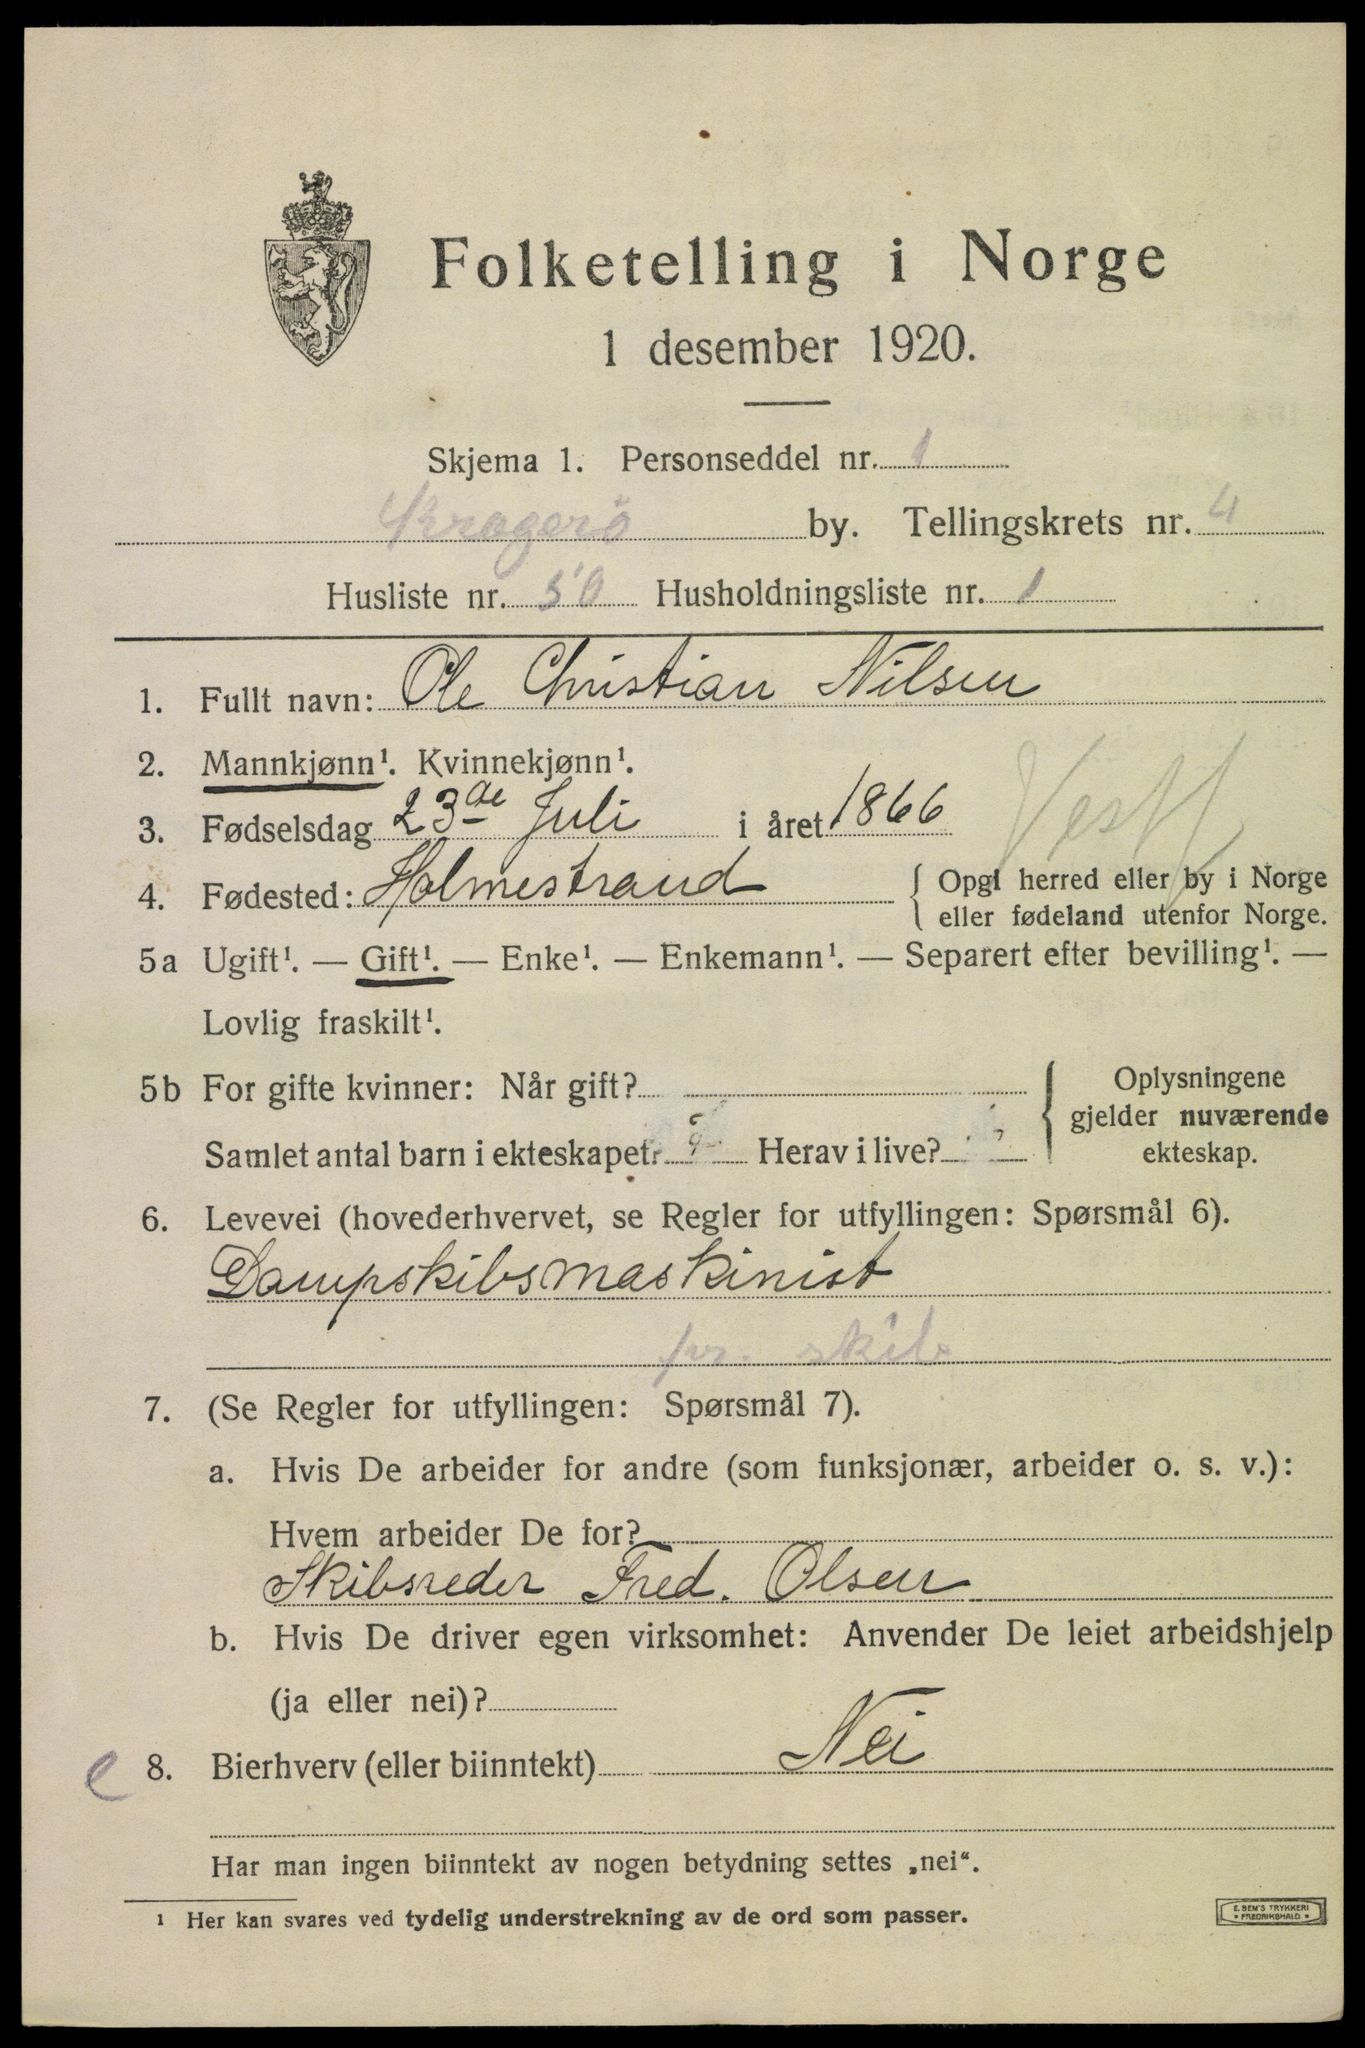 Folketelling i Norge
1 desember 1920.
Skjema 1. Personseddel nr. 1
Kragerö by. Tellingskrets nr. 4
Husliste nr. 50 Husholdningsliste nr. 1
1. Fullt navn: Ole Christian Nilsen
2. Mannkjønn¹. Kvinnekjønn¹.
3. Fødselsdag 23de Juli i året 1866
Vestf
4. Fødested: Holmestrand { Opgi herred eller by i Norge
eller fødeland utenfor Norge.
5a Ugift¹. — Gift¹. — Enke¹. — Enkemann¹. — Separert efter bevilling¹. —
Lovlig fraskilt¹.
5b For gifte kvinner: Når gift?
Samlet antal barn i ekteskapet: Herav i live?
Oplysningene
gjelder nuværende
ekteskap.
6. Levevei (hovederhvervet, se Regler for utfyllingen: Spørsmål 6).
Dampskibsmaskinist
pr. skib
7. (Se Regler for utfyllingen: Spørsmål 7).
a. Hvis De arbeider for andre (som funksjonær, arbeider o. s. v.):
Hvem arbeider De for?
Skibsreder Fred. Olsen
b. Hvis De driver egen virksomhet: Anvender De leiet arbeidshjelp
(ja eller nei)?
8. Bierhverv (eller biinntekt) Nei
Har man ingen biinntekt av nogen betydning settes „nei“.
¹ Her kan svares ved tydelig understrekning av de ord som passer.
E. SEM'S TRYKKERI
• FREDRIKSHALD. •